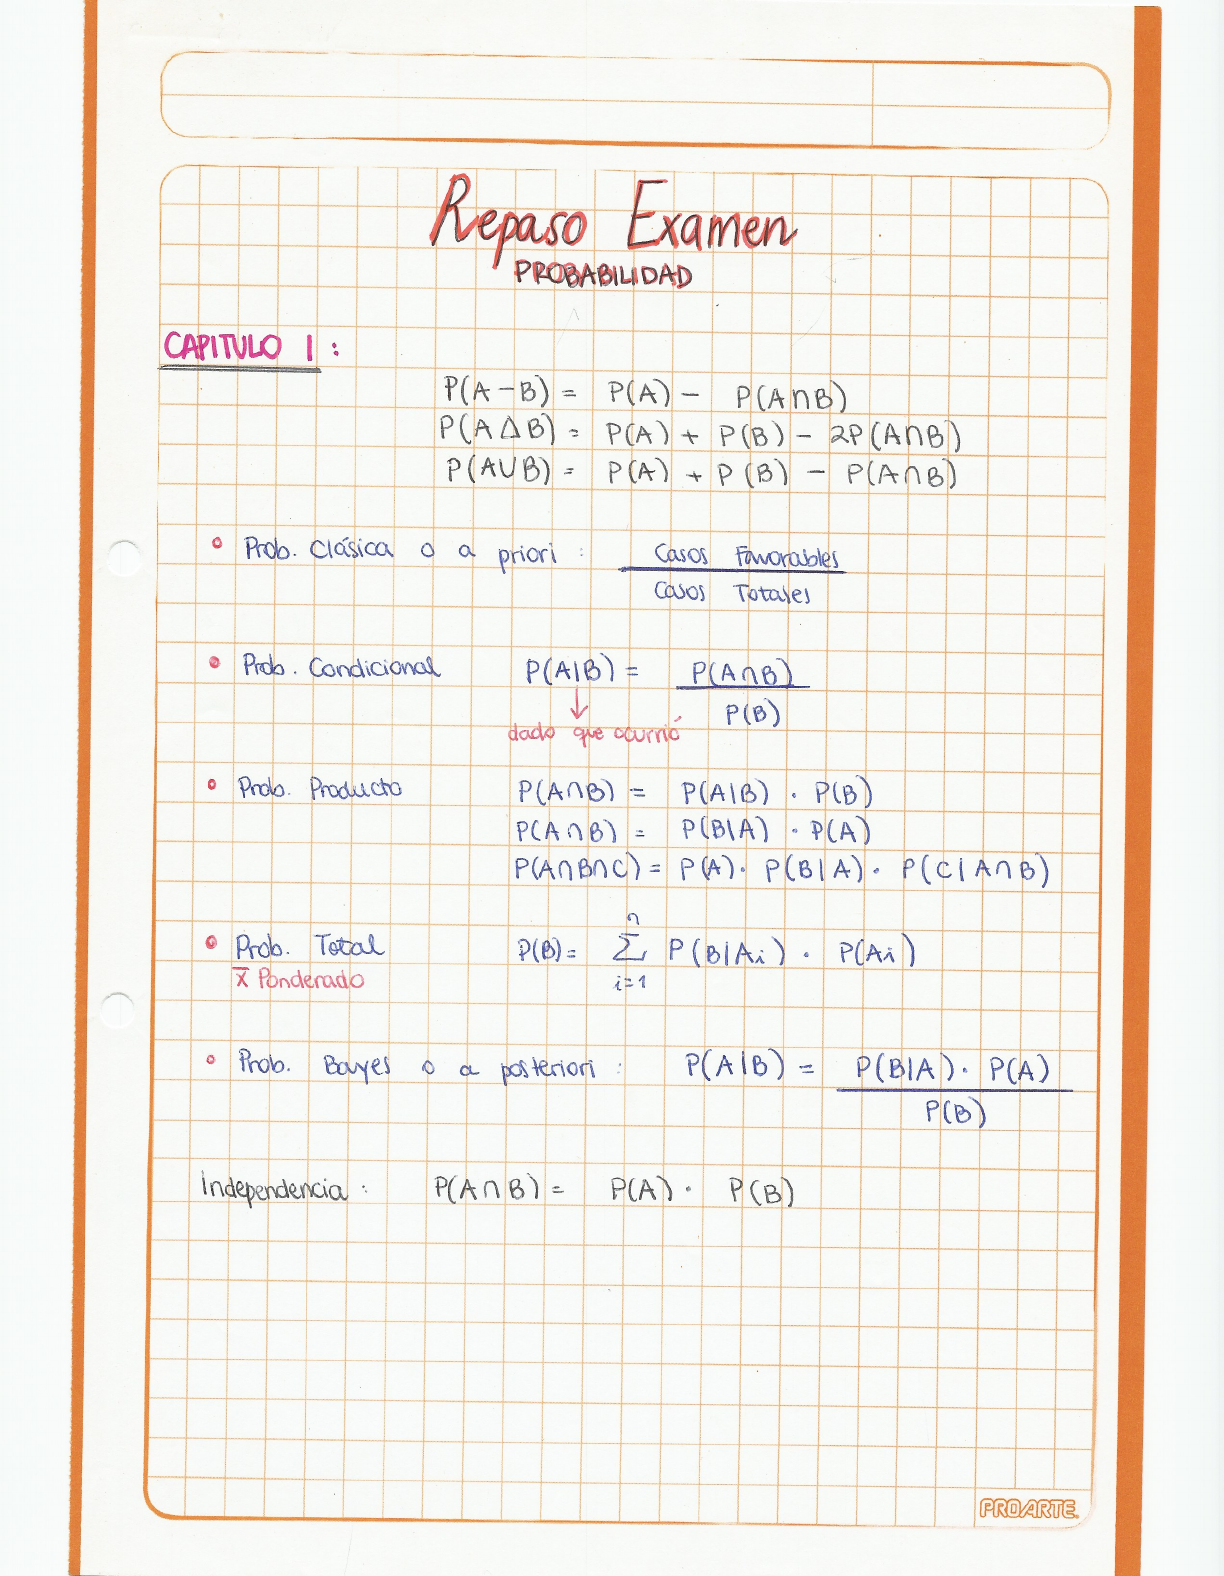 Repaso Examen
PROBABILIDAD
CAPITULO 1 :
P(A-B) = P(A) - P(A∩B)
P(A Δ B) = P(A) + P(B) - 2P(A∩B)
P(A∪B) = P(A) + P(B) - P(A∩B)
• Prob. Clásica o a priori : Casos Favorables
Casos Totales
• Prob. Condicional P(A|B) = P(A∩B)
P(B)
↓
dado que ocurrió
• Prob. Producto P(A∩B) = P(A|B) · P(B)
P(A∩B) = P(B|A) · P(A)
P(A∩B∩C) = P(A) · P(B|A) · P(C|A∩B)
• Prob. Total P(B) = n Σ i=1 P(B|Ai) · P(Ai)
x̄ Ponderado
• Prob. Bayes o a posteriori : P(A|B) = P(B|A) · P(A)
P(B)
Independencia : P(A∩B) = P(A) · P(B)
PROARTE